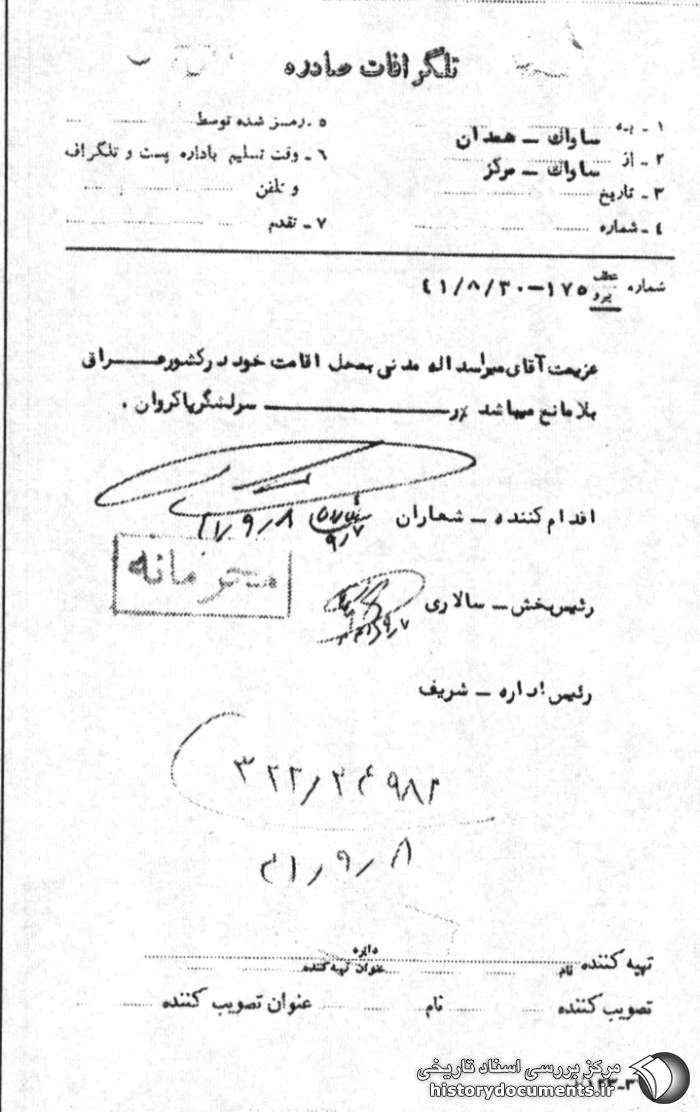 تلگرافات صادره
۱ - به ساواك - همدان
۲ - از ساواك - مركز
۳ - تاریخ
۴ - شماره
۵ - رمز شده توسط
۶ - وقت تسلیم باداره پست و تلگراف
و تلفن
۷ - تقدم
شماره عطف پیرو ۱۷۵-۴۱/۸/۳۰
عزیمت آقای میراسداله مدنی بمحل اقامت خود در کشور عراق
بلامانع میباشد سرلشگر پاکروان .
اقدام کننده - شعاران
۹/۷
۴۱/۹/۸
محرمانه
رئیس بخش - سالاری
رئیس اداره - شریف
۳۲۲/
۴۱/۹/۸
تهیه کننده نام دایره عنوان تهیه کننده
تصویب کننده نام عنوان تصویب کننده
مرکز بررسی اسناد تاریخی
historydocuments.ir